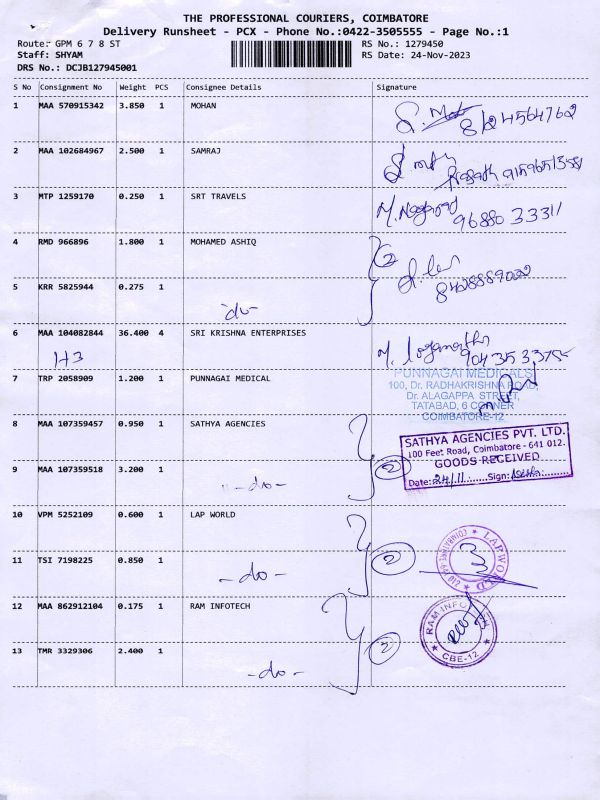 THE PROFESSIONAL COURIERS, COIMBATORE
Delivery Runsheet - PCX - Phone No.:0422-3505555 - Page No.:1
Route: GPM 6 7 8 ST RS No.: 1279450
Staff: SHYAM RS Date: 24-Nov-2023
DRS No.: DCJB127945001
S No Consignment No Weight PCS Consignee Details Signature
1 MAA 570915342 3.850 1 MOHAN
8124564762
2 MAA 102684967 2.500 1 SAMRAJ
3 MTP 1259170 0.250 1 SRT TRAVELS
96880 33311
4 RMD 966896 1.800 1 MOHAMED ASHIQ
2
8428889022
5 KRR 5825944 0.275 1
-do-
6 MAA 104082844 36.400 4 SRI KRISHNA ENTERPRISES
H3
7 TRP 2058909 1.200 1 PUNNAGAI MEDICAL
PUNNAGAI MEDICALS
100, Dr. RADHAKRISHNA ROAD,
Dr. ALAGAPPA STREET,
TATABAD, 6 CORNER
COIMBATORE-12
8 MAA 107359457 0.950 1 SATHYA AGENCIES
SATHYA AGENCIES PVT. LTD.
100 Feet Road, Coimbatore - 641 012.
GOODS RECEIVED
Date: 24/11 Sign:
2
9 MAA 107359518 3.200 1
" -do-
10 VPM 5252109 0.600 1 LAP WORLD
LAP WORLD
2
11 TSI 7198225 0.850 1
-do-
12 MAA 862912104 0.175 1 RAM INFOTECH
RAM INFOTECH
CBE-12
2
13 TMR 3329306 2.400 1
-do-